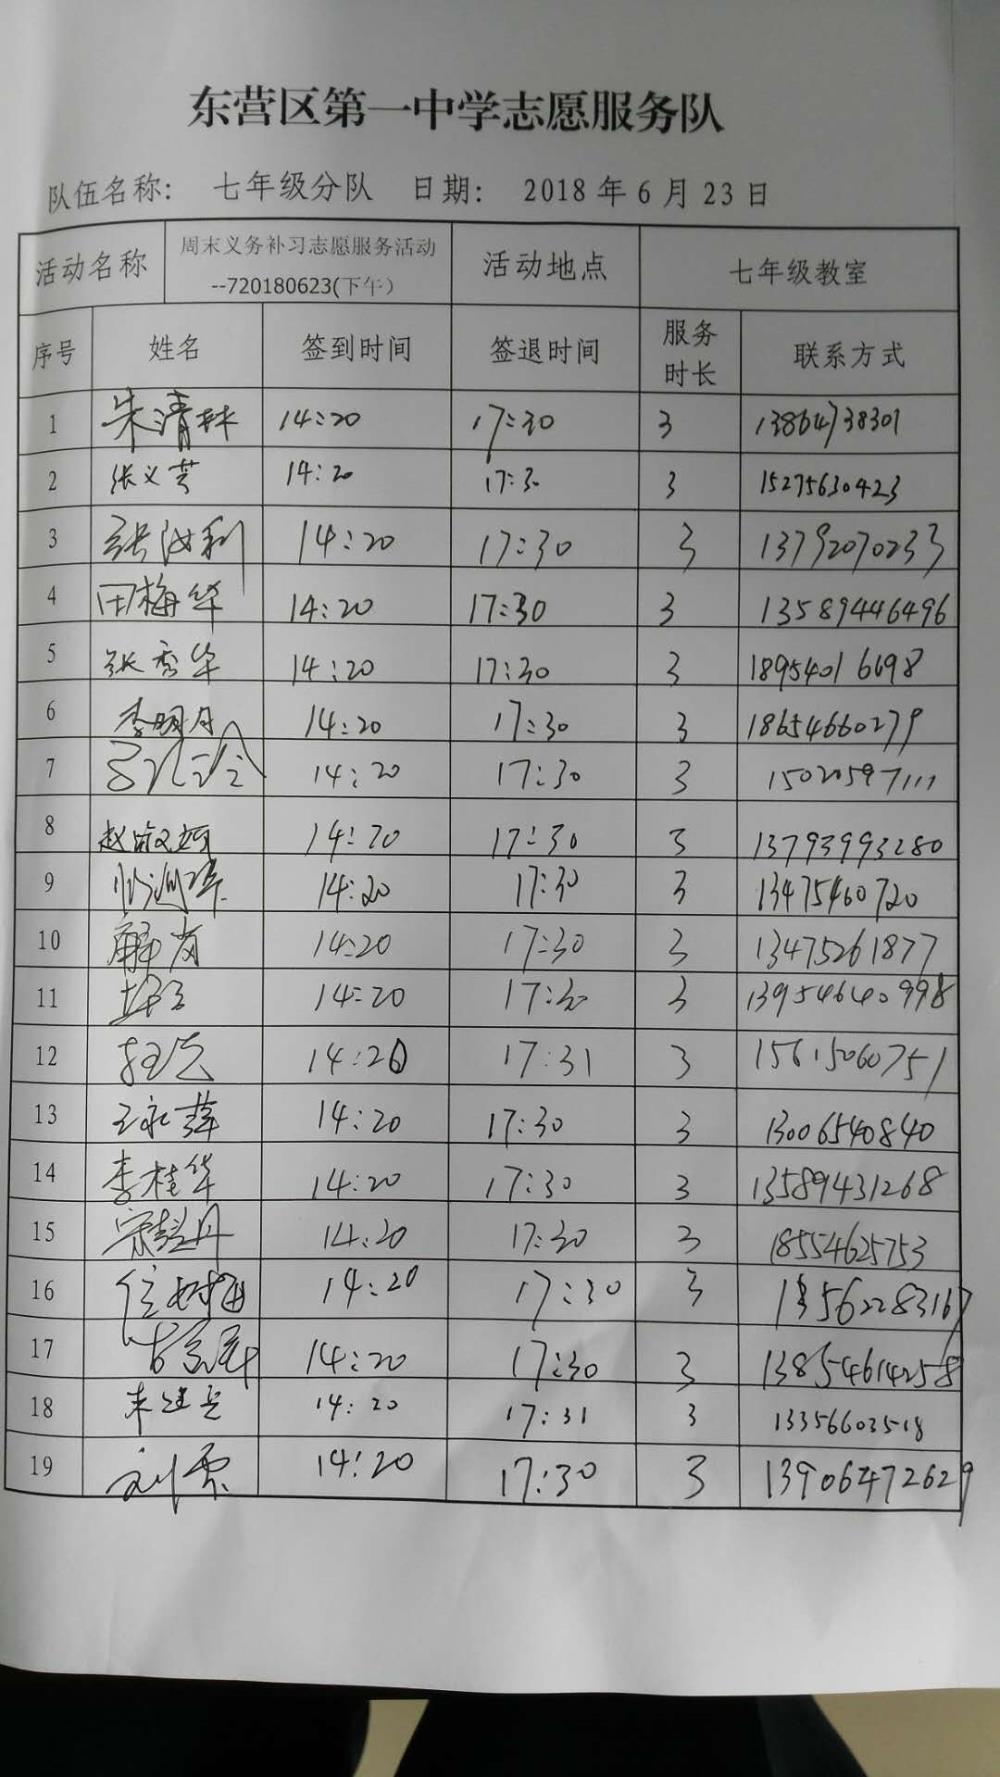 东营区第一中学志愿服务队
队伍名称： 七年级分队 日期： 2018 年 6 月 23 日
活动名称 周末义务补习志愿服务活动--720180623(下午） 活动地点 七年级教室
序号 姓名 签到时间 签退时间 服务时长 联系方式
1 朱清林 14:20 17:30 3 13864738301
2 张义芳 14:20 17:30 3 15275630423
3 张汝利 14:20 17:30 3 13792070233
4 田梅华 14:20 17:30 3 13589446496
5 张秀华 14:20 17:30 3 18954016698
6 李明月 14:20 17:30 3 18654660279
7 14:20 17:30 3 15020597111
8 赵淑珂 14:20 17:30 3 13793993280
9 14:20 17:30 3 13475460720
10 解芳 14:20 17:30 3 13475261877
11 14:20 17:30 3 13954640998
12 14:20 17:31 3 15615060751
13 王永萍 14:20 17:30 3 13006540840
14 李桂华 14:20 17:30 3 13589431268
15 宋彭丹 14:20 17:30 3 18554625753
16 14:20 17:30 3 13562283167
17 14:20 17:30 3 13854614258
18 14:20 17:31 3 13356603518
19 刘霞 14:20 17:30 3 13906472629